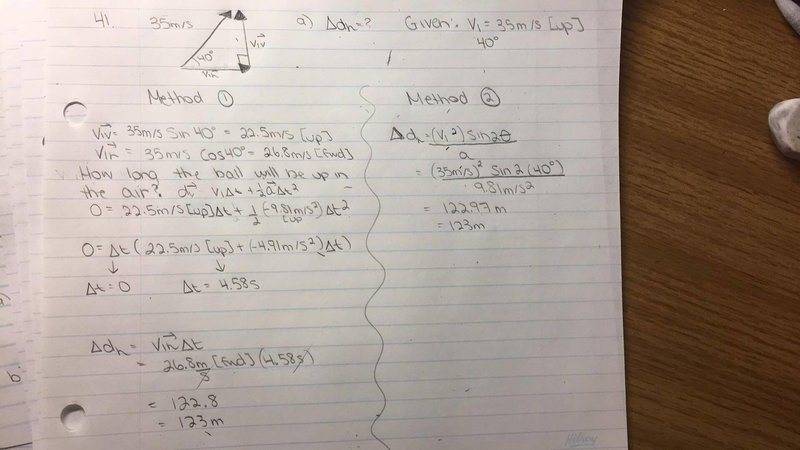 41.
35m/s
40°
V₁ᵥ
V₁ₕ
a) Δdₕ = ?
Given: V₁ = 35m/s [up]
40°
Method ①
V₁ᵥ = 35m/s Sin 40° = 22.5m/s [up]
V₁ₕ = 35m/s Cos40° = 26.8m/s [fwd]
How long the ball will be up in
the air? d⃗ V₁Δt + ½a⃗Δt²
0 = 22.5m/s [up]Δt + ½ (-9.81m/s²)Δt²
[up]
0 = Δt (22.5m/s [up] + (-4.91m/s²)Δt)
↓ ↓
Δt = 0 Δt = 4.58s
Δdₕ = V₁ₕ Δt
= 26.8m/s [fwd] (4.58s)
= 122.8
= 123m
Method ②
Δdₕ = (V₁²) Sin2θ / a
= (35m/s)² Sin 2(40°) / 9.81m/s²
= 122.97m
= 123m
b
Hilroy